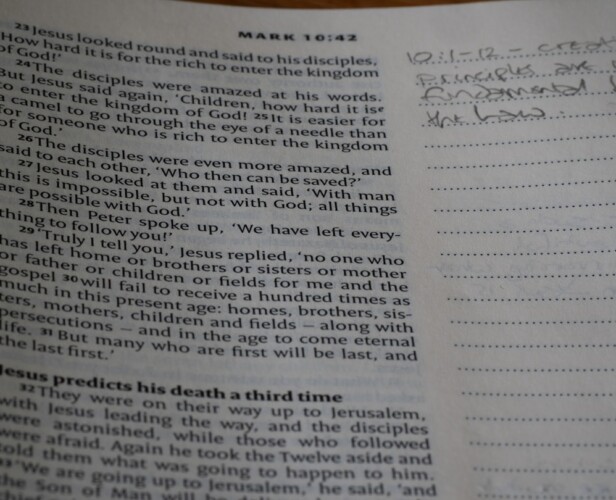 MARK 10:42
23 Jesus looked round and said to his disciples,
'How hard it is for the rich to enter the kingdom
of God!'
24 The disciples were amazed at his words.
But Jesus said again, 'Children, how hard it is
to enter the kingdom of God! 25 It is easier for
a camel to go through the eye of a needle than
for someone who is rich to enter the kingdom
of God.'
26 The disciples were even more amazed, and
said to each other, 'Who then can be saved?'
27 Jesus looked at them and said, 'With man
this is impossible, but not with God; all things
are possible with God.'
28 Then Peter spoke up, 'We have left every-
thing to follow you!'
29 'Truly I tell you,' Jesus replied, 'no one who
has left home or brothers or sisters or mother
or father or children or fields for me and the
gospel 30 will fail to receive a hundred times as
much in this present age: homes, brothers, sis-
ters, mothers, children and fields – along with
persecutions – and in the age to come eternal
life. 31 But many who are first will be last, and
the last first.'
Jesus predicts his death a third time
32 They were on their way up to Jerusalem,
with Jesus leading the way, and the disciples
were astonished, while those who followed
were afraid. Again he took the Twelve aside and
told them what was going to happen to him.
33 'We are going up to Jerusalem,' he said, 'and
the Son of Man will be
10:1-12 – creat
Principles are
fundamental
the law.